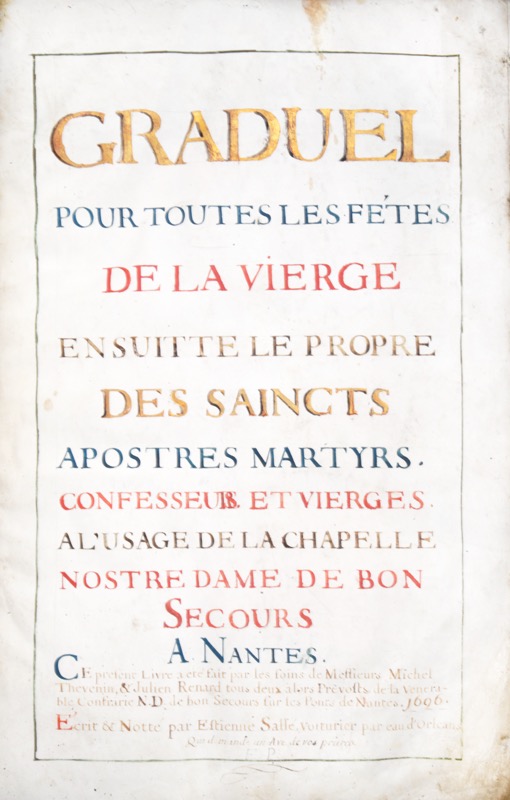 GRADUEL
POUR TOUTES LES FÉTES
DE LA VIERGE
ENSUITTE LE PROPRE
DES SAINCTS
APOSTRES MARTYRS.
CONFESSEURS. ET VIERGES.
A L'USAGE DE LA CHAPELLE
NOSTRE DAME DE BON
SECOURS
A NANTES.
CE present Livre a eté fait par les soins de Messieurs Michel
Thevenin, & Julien Renard tous deux alors Prévosts de la Venera-
ble Confrairie N.D. de bon Secours sur les Ponts de Nantes. 1696.
Ecrit & Notté par Estienne Salle, Voiturier par eau d'Orleans
Qui demande un Ave de vos prieres